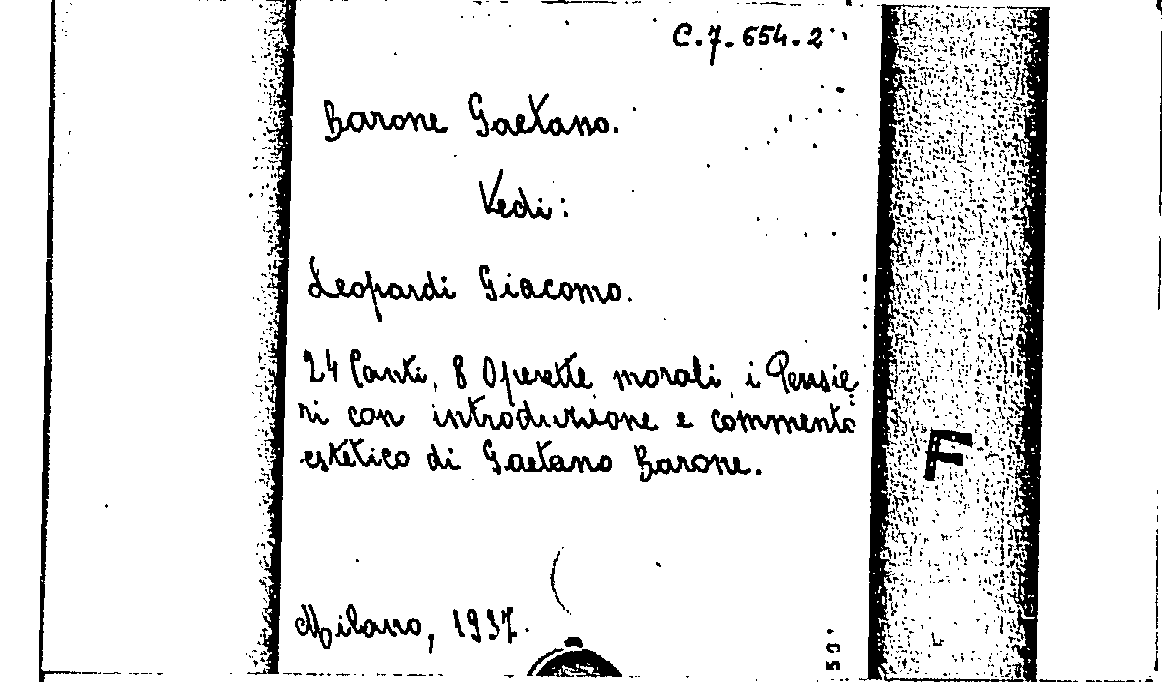 C.7.654.2
Barone Gaetano.
Vedi:
Leopardi Giacomo.
24 Canti, 8 Operette morali, i Pensie
ri con introduzione e commento
estetico di Gaetano Barone.
F
Milano, 1937.
50